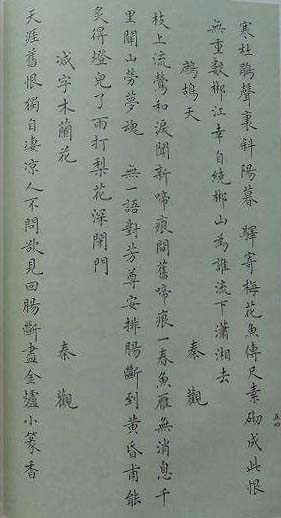 寒杜鵑聲裏斜陽暮　驛寄梅花魚傳尺素砌成此恨
無重數郴江幸自繞郴山為誰流下瀟湘去
鷓鴣天
秦觀
枝上流鶯和淚聞新啼痕間舊啼痕一春魚雁無消息千
里關山勞夢魂　無一語對芳尊安排腸斷到黃昏甫能
炙得燈兒了雨打梨花深閉門
減字木蘭花
秦觀
天涯舊恨獨自淒涼人不問欲見回腸斷盡金爐小篆香